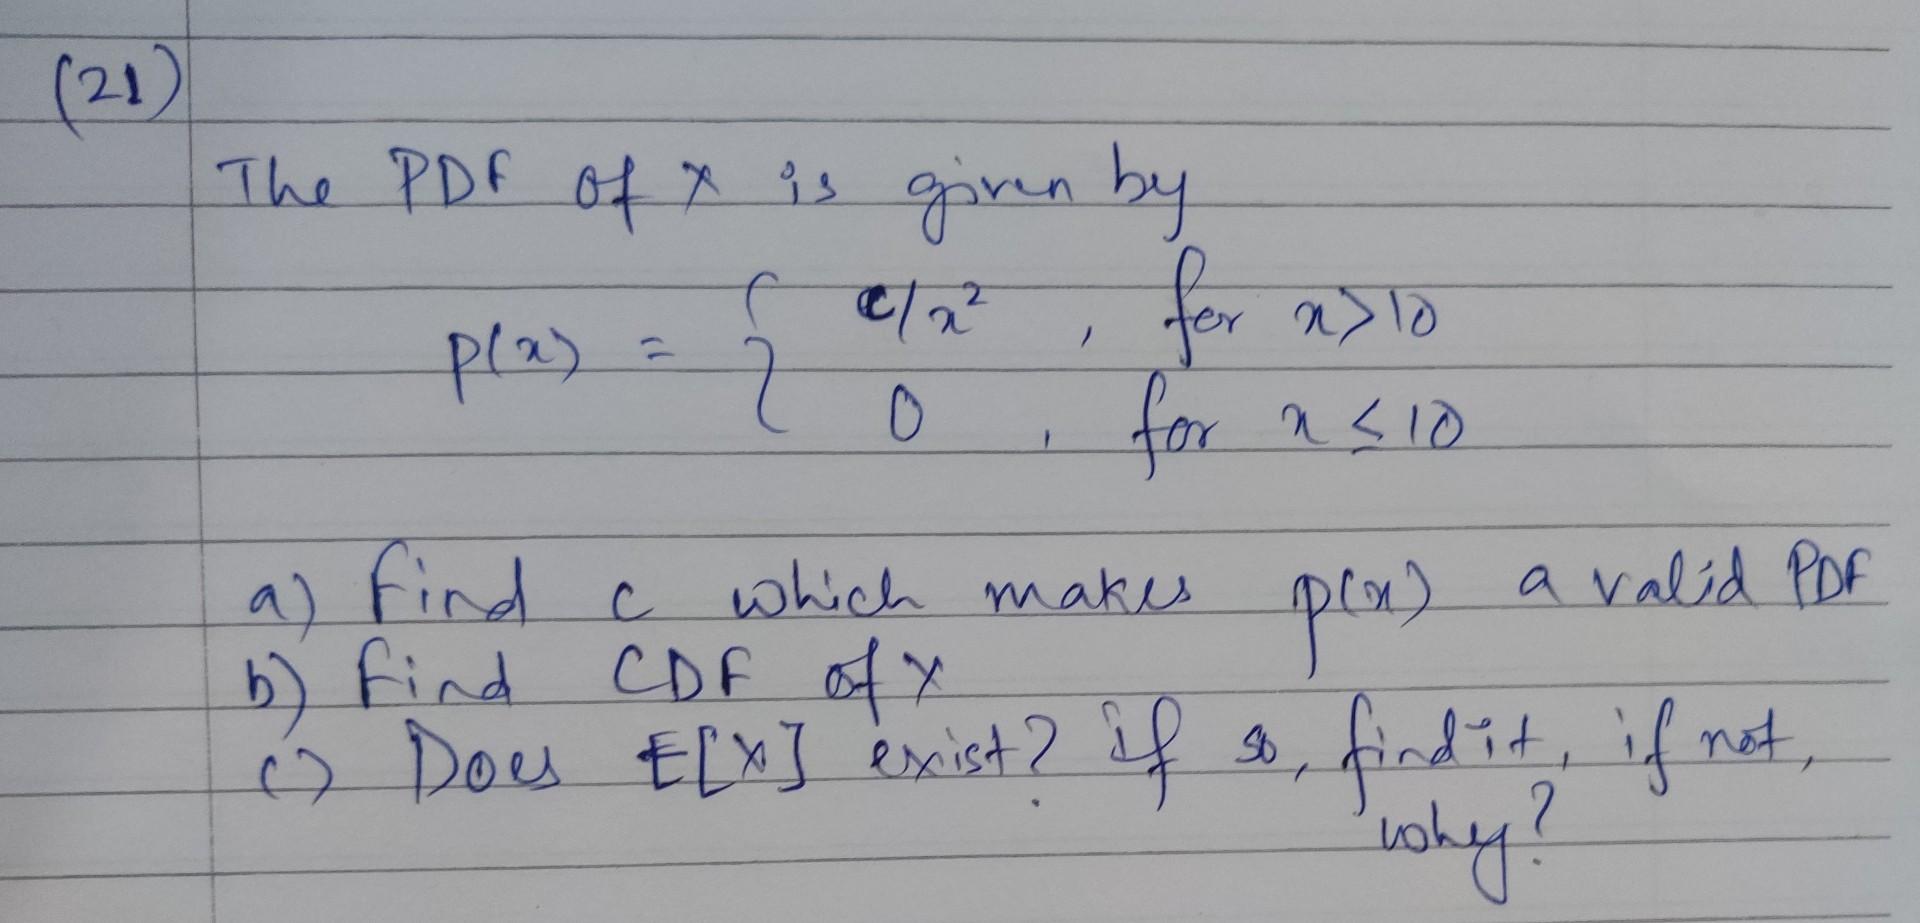 (21)
The PDF of X is given by
p(x) = { c/x², for x>10
0, for x ≤ 10
a) Find c which makes p(x) a valid PDF
b) Find CDF of X
c) Does E[X] exist? If so, find it, if not,
why?